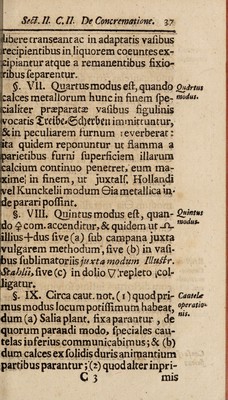 Sect. II. C. II. De Concrematione. 37
libere transeant ac in adaptatis vasibus
recipientibus in liquorem coeuntes ex-
cipiantur atque a remanentibus fixio-
ribus separentur.
§. VII. Quartus modus est, quando
Quartus
modus.
calces metallorum hunc in finem spe-
cialiter præparatæ vasibus figulinis
vocatis Treibe-Scherben immittuntur,
& in peculiarem furnum reverberat:
ita quidem reponuntur ut flamma a
parietibus furni superficiem illarum
calcium continuo penetret, eum ma-
xime in finem, ut juxta Is. Hollandi
vel Kunckelii modum ⊖ia metallica in-
de parari possint.
§. VIII. Quintus modus est, quan-
Quintus
modus.
do ♀ com. accenditur, & quidem ut
illius+dus sive (a) sub campana juxta
vulgarem methodum, sive (b) in vasi-
bus sublimatoriis juxta modum Illustr.
Stahlii, sive (c) in dolio ▽ repleto col-
ligatur.
§. IX. Circa caut. not. (1) quod pri-
Cautelæ
operatio-
nis.
mus modus locum potissimum habeat,
dum (a) Salia plant. fixa parantur, de
quorum parandi modo, speciales cau-
telas inferius communicabimus; & (b)
dum calces ex solidis duris animantium
partibus parantur; (2) quod alter inpri-
C 3 mis